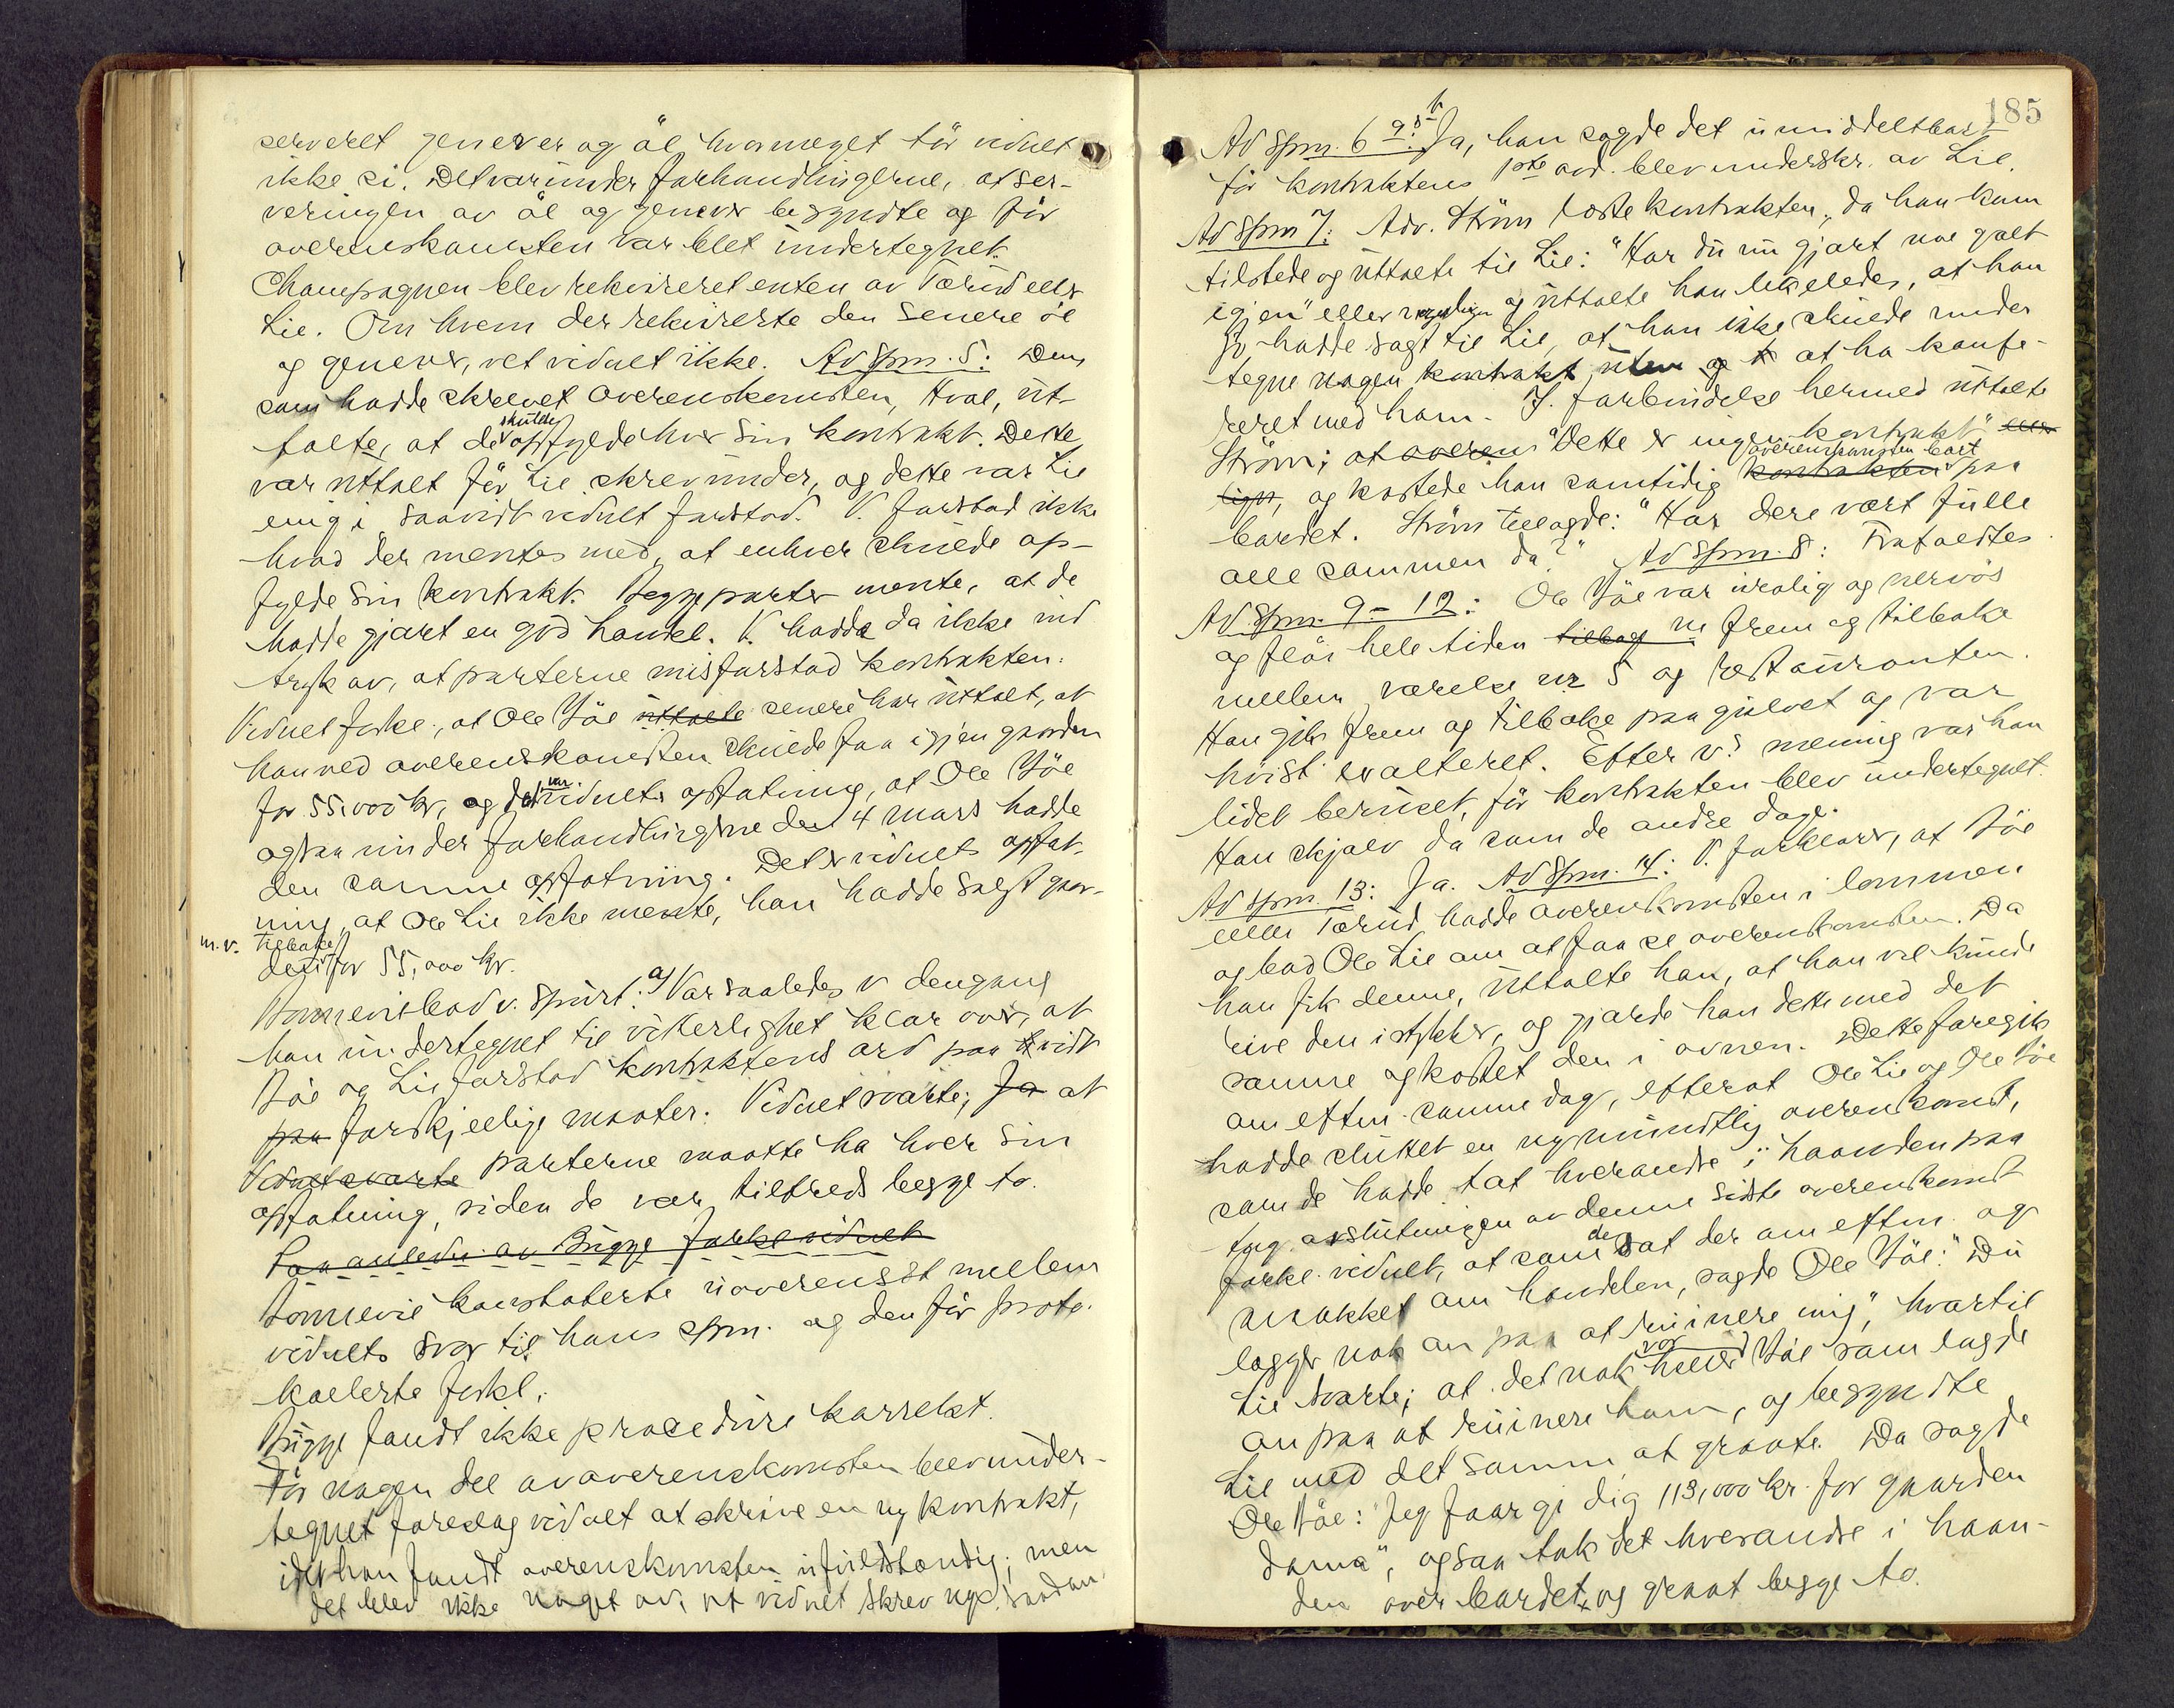 serveret genever og öl hvormeget tör vidnet
ikke si. Det var under forhandlingerne, at ser-
veringen av öl og genever begyndte og för
overenskomsten var blet undertegnet.
Champagnen blev rekvireret enten av Tærud eller
Lie. Om hvem der rekvirerte den senere öl
og genever, vet vidnet ikke. Ad spm. 5: Den,
som hadde skrevet overenskomsten, Hval, ut-
talte, at de skulde opfylde hver sin kontrakt. Dette
var uttalt för Lie skrev under, og dette var Lie
enig i saavidt vidnet forstod. V. forstod ikke
hvad der mentes med, at enhver skulde op-
fylde sin kontrakt. Begge parter mente, at de
hadde gjort en god handel. V. hadde da ikke ind
tryk av, at parterne misforstod kontrakten.
Vidnet forkl., at Ole Töe uttalte senere har uttalt, at
han ved overenskomsten skulde faa igjen gaarden
for 55.000 kr, og det var vidnets opfatning, at Ole Töe
ogsaa under forhandlingerne den 4 mars hadde
den samme opfatning. Det er vidnets opfat-
ning, at Ole Lie ikke mente, han hadde solgt gaar-
m.v. tilbake
den for 55,000 kr.
Sönnevis bad v. spurt: a/ Var saaledes v dengang
han undertegnet til vitterlighet klar over, at
Töe og Lie forstod kontraktens ord paa vidt
paa forskjellige maater. Vidnet svarte; Ja at
Vidnet svarte parterne maatte ha hver sin
opfatning, siden de var tilfreds begge to.
Paa anledn. av Bugge forkl vidnet
Sönnevis konstaterte uoverensst mellem
vidnets svar til hans spm. og den för proto-
kollerte forkl.
Bugge fandt ikke procedure korrekt.
För nogen del av overenskomsten blev under-
tegnet foreslog vidnet at skrive en ny kontrakt,
idet han fandt overenskomsten ufuldstændig; men
det blev ikke noget av, at vidnet skrev nye. saadan
185
Ad spm. 6 Ja, han sagde det umiddelbart
för kontraktens 1ste avd. blev underskr. av Lie.
Ad spm 7: Adv. Ström læste kontrakten, da han kom
tilstede og uttalte til Lie: "Har du nu gjort noe galt
igjen" eller og uttalte han likeledes, at han
jo hadde sagt til Lie, at han ikke skulde under
tegne nogen kontrakt uten at ha konfe-
reret med ham. I forbindelse hermed uttalte
Ström; at overens "Dette er ingen kontrakt" eller
lign, og kastede han samtidig kontrakten overenskomsten bort paa
bordet. Ström tillagde: "Har dere vært fulle
alle sammen da?" Ad spm. 8: Frafaldtes.
Ad spm. 9 - 12: Ole Töe var urolig og nervös
og flöi hele tiden tilbage frem og tilbake
mellem værelse nr 5 og restauranten.
Han gik frem og tilbake paa gulvet og var
höist exalteret. Efter v's mening var han
lidet beruset, för kontrakten blev undertegnet.
Han skjalv da som de andre dage.
Ad spm. 13: Ja. Ad spm. 14: V. forklarer, at Töe
eller Tærud hadde overenskomsten i lommen
og bad Ole Lie om at faa se overenskomsten. Da
han fik denne, uttalte han, at han vel kunde
rive den i stykker, og gjorde han dette med det
samme og kastet den i ovnen. Dette foregik
om efterm. samme dag, efterat Ole Lie og Ole Töe
hadde sluttet en ny mundtlig overenskomst,
som de hadde tat hverandre i haanden paa
avslutningen av denne sidste overenskomst
forkl. vidnet, at som de sat der om efterm. og
snakket om handelen, sagde Ole Töe: "Du
lægger nok an paa at ruinere mig", hvortil
Lie svarte; at det nok heller var Töe som lagde
an paa at ruinere ham, og begyndte
Lie med det samme at graate. Da sagde
Ole Töe: "Jeg faar gi dig 113,000 kr. for gaarden
dama", og saa tok det hverandre i haan-
den over bordet, og graat begge to.